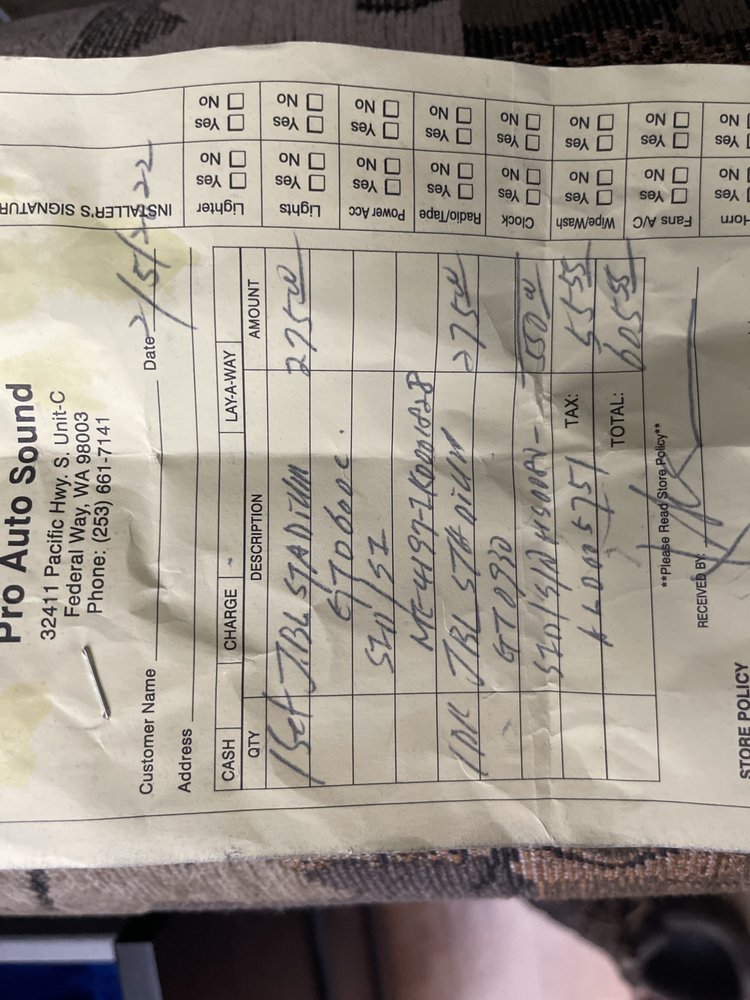 Pro Auto Sound
32411 Pacific Hwy. S. Unit-C
Federal Way, WA 98003
Phone: (253) 661-7141
Customer Name
Date 2/5/2022
Address
CASH CHARGE LAY-A-WAY
QTY DESCRIPTION AMOUNT
1 Set JBL STADIUM 275.00
GTO600C.
JBL STADIUM 275.00
GTO930
550.00
TAX: 55.55
TOTAL: 605.55
**Please Read Store Policy**
RECEIVED BY:
STORE POLICY
INSTALLER'S SIGNATUR
Lighter Yes No Yes No
Lights Yes No Yes No
Power Acc Yes No Yes No
Radio/Tape Yes No Yes No
Clock Yes No Yes No
Wipe/Wash Yes No Yes No
Fans A/C Yes No Yes No
Horn Yes No Yes No